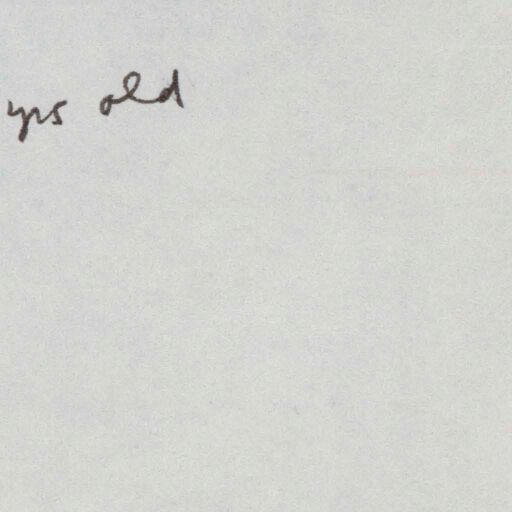 yrs old